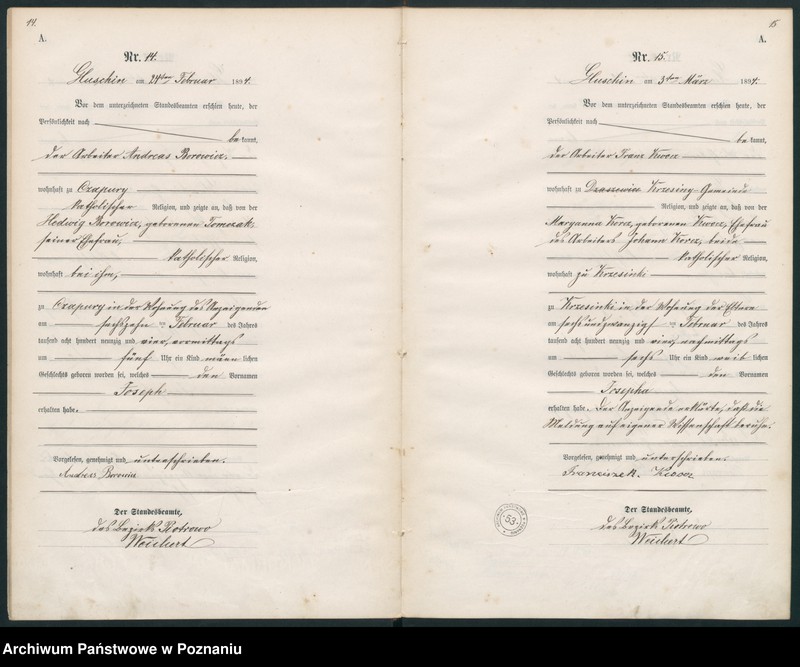 14.
A.
Nr. 14.
Gluschin am 24ten Februar 1894.
Vor dem unterzeichneten Standesbeamten erschien heute, der
Persönlichkeit nach
bekannt,
der Arbeiter Andreas Borowicz,
wohnhaft zu Czapury
katholischer Religion, und zeigte an, daß von der
Hedwig Borowicz, geborenen Tomczak,
seiner Ehefrau,
katholischer Religion,
wohnhaft bei ihm,
zu Czapury in der Wohnung des Anzeigenden
am sechszehn ten Februar des Jahres
tausend acht hundert neunzig und vier, vormittags
um fünf Uhr ein Kind männlichen
Geschlechts geboren worden sei, welches den Vornamen
Joseph
erhalten habe.
Vorgelesen, genehmigt und unterschrieben.
Andreas
Der Standesbeamte,
des Bezirk Piotrowo
Weichert
15
A.
Nr. 15.
Gluschin am 3ten März 1894.
Vor dem unterzeichneten Standesbeamten erschien heute, der
Persönlichkeit nach
bekannt,
der Arbeiter Franz
wohnhaft zu Krzesiny-Gemeinde
Religion, und zeigte an, daß von der
Maryanna geborenen Ehefrau
des Arbeiters Johann beide
katholischer Religion,
wohnhaft zu Krzesinki
zu Krzesinki in der Wohnung der Eltern
am sechsundzwanzig ten Februar des Jahres
tausend acht hundert neunzig und vier, nachmittags
um sechs Uhr ein Kind weiblichen
Geschlechts geboren worden sei, welches den Vornamen
Josepha
erhalten habe. Der Anzeigende erklärte, daß die
Meldung auf eigener Wissenschaft beruhe.
Vorgelesen, genehmigt und unterschrieben.
Franciszek
Der Standesbeamte,
des Bezirk Piotrowo
Weichert
53
Archiwum Państwowe w Poznaniu